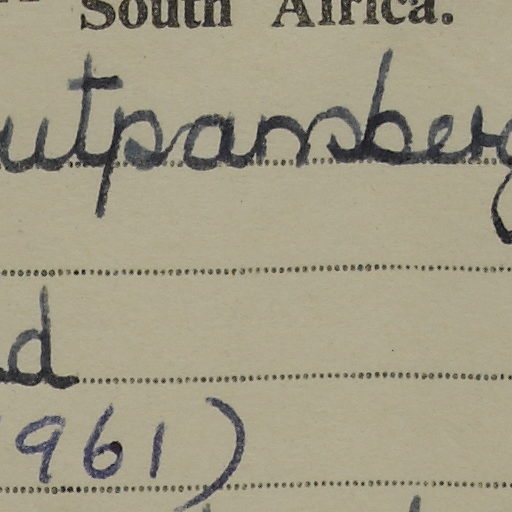 South Africa.
utpansberg
d
961)